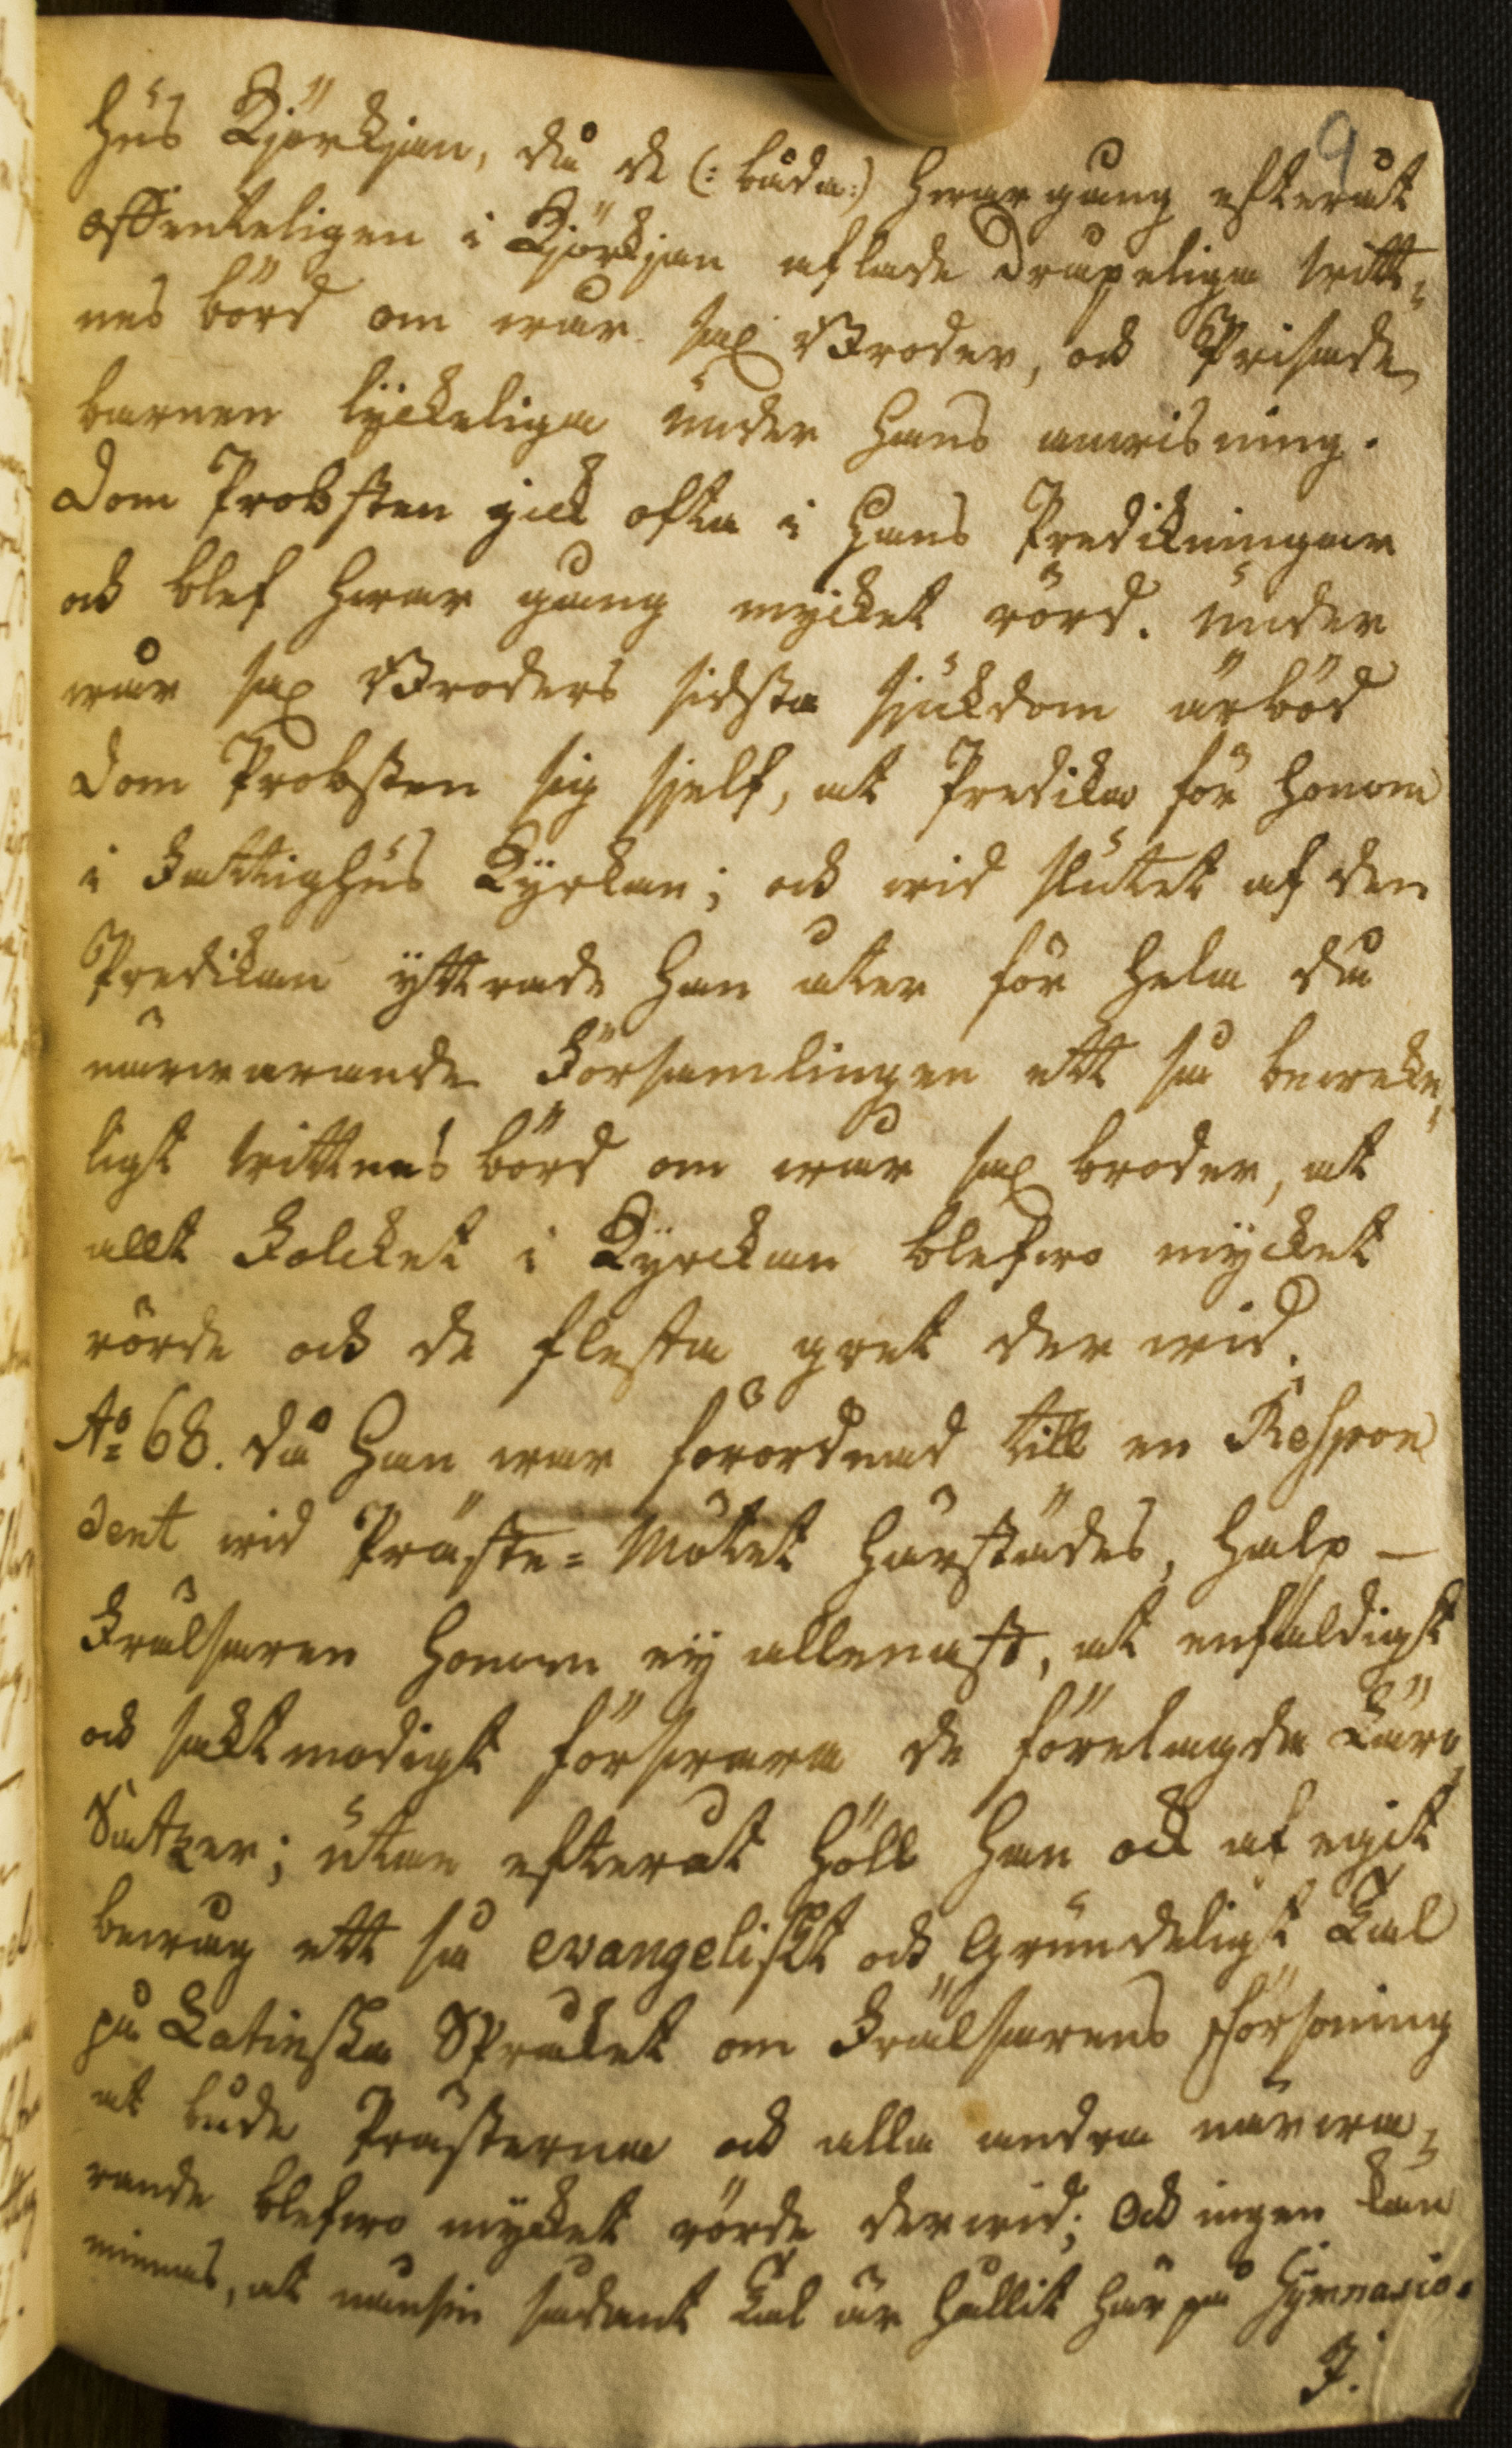 9
hus Kjörkjan, då de (: båda :) hwar gång efteråt
offenteligen i Kjörkjan aflade drapeliga witt-
nes börd om wår sal Broder, och Prisade
barnen lyckeliga under hans anwisning.
Dom Probsten gick ofta i hans Predikningar
och blef hwar gång mycket rörd. Under
wår sal Broders sidsta sjukdom ärböd
Dom Probsten sig sjelf, at Predika för honom
i Fattighus Kyrkan; och wid slutet af den
Predikan yttrade han åter för hela då
närwarande Församlingen ett så beweke-
ligt wittnes börd om wår sal broder, at
allt Folcket i Kyrckan blefwo mycket
rörde och de flesta gret der wid.
Ao 68. då han war förordnad till en Respon
dent wid Präste-Mötet härstädes, halp —
Frälsaren honom ey allenast, at enfaldigt
och saktmodigt förswara de förelagda Läro
Satzer; utan efteråt höll han och af egit
bewåg ett så evangeliskt och Grundeligt Tal
på Latinska Språket om Frälsarens försoning
at både Prästerna och alla andra närwa-
rande blefwo mycket rörde derwid; Och ingen kan
minnas, at nånsin sådant Tal är hållit här på Gymnasio.
J.